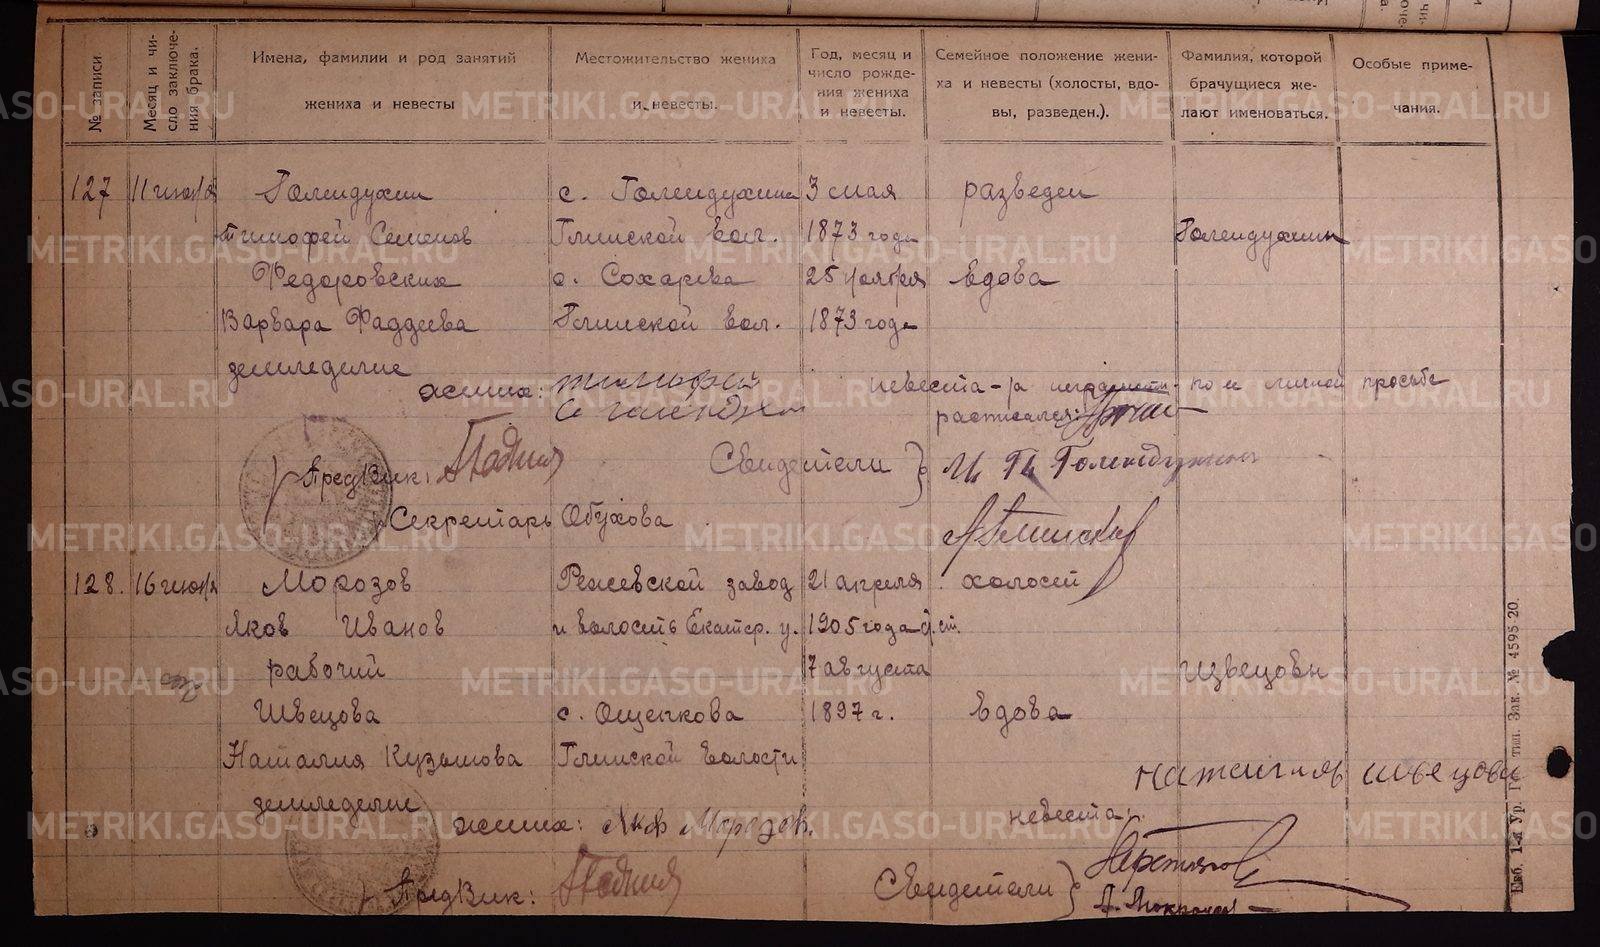 № записи
Месяц и чи-
сло заключе-
ния брака.
Имена, фамилии и род занятий
жениха и невесты
Местожительство жениха
и невесты.
Год, месяц и
число рожде-
ния жениха
и невесты.
Семейное положение жени-
ха и невесты (холосты, вдо-
вы, разведен.).
Фамилия, которой
брачущиеся же-
лают именоваться.
Особые приме-
чания.
127 11 июня Голендухин с. Голендухина 3 мая разведен
Тимофей Семенов Глинской вол. 1873 года Голендухин
Федоровских д. Сохарева 25 ноября вдова
Варвара Фаддеева Глинской вол. 1873 года
земледелие
жених: тимофей невеста - по ее личной просьбе
расписался:
ПредВик: Свидетели Голендухин
Секретарь Обухова
128. 16 июня Морозов Режевской завод 21 апреля холост
Яков Иванов и волость Екатер. у. 1905 года
рабочий 7 августа Швецовы
Швецова с. Ощепкова 1897 г. вдова
Наталия Кузьмова Глинской волости
земледелие
Наталия Швецова
жених: Яков Морозов. невеста:
ПредВик: Свидетели
Екб. 1-я Ур. Гос. тип. Зак. № 4595-20.
METRIKI.GASO-URAL.RU